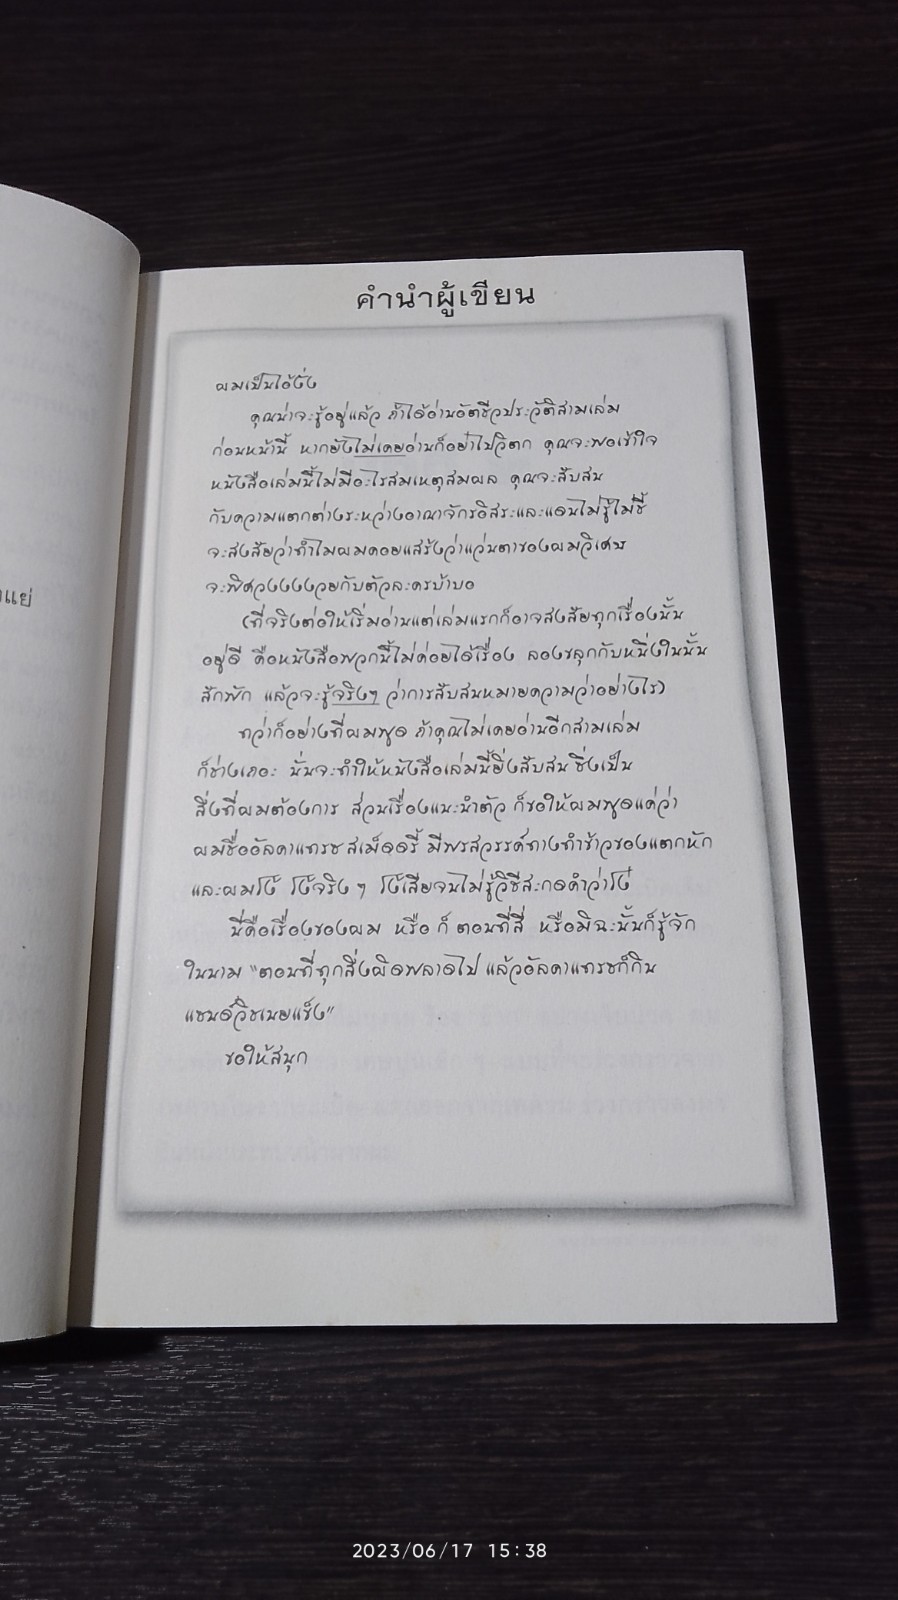 คำนำผู้เขียน
ผมเป็นไอ้งั่ง
คุณน่าจะรู้อยู่แล้ว ถ้าได้อ่านอัตชีวประวัติสามเล่ม
ก่อนหน้านี้ หากยังไม่เคยอ่านก็อย่าไปวิตก คุณจะพอเข้าใจ
หนังสือเล่มนี้ไม่มีอะไรสมเหตุสมผล คุณจะสับสน
กับความแตกต่างระหว่างอาณาจักรอิสระและแดนไม่รู้ไม่ชี้
จะสงสัยว่าทำไมผมคอยแสร้งว่าแว่นตาของผมวิเศษ
จะพิศวงงงงวยกับตัวละครบ้าบอ
(ที่จริงต่อให้เริ่มอ่านแต่เล่มแรกก็อาจสงสัยทุกเรื่องนั้น
อยู่ดี คือหนังสือพวกนี้ไม่ค่อยได้เรื่อง ลองขลุกกับหนึ่งในนั้น
สักพัก แล้วจะรู้จริงๆ ว่าการสับสนหมายความว่าอย่างไร)
ทว่าก็อย่างที่ผมพูด ถ้าคุณไม่เคยอ่านอีกสามเล่ม
ก็ช่างเถอะ นั่นจะทำให้หนังสือเล่มนี้ยิ่งสับสน ซึ่งเป็น
สิ่งที่ผมต้องการ ส่วนเรื่องแนะนำตัว ก็ขอให้ผมพูดแค่ว่า
ผมชื่ออัลคาแทรซ สเม็ดดรี้ มีพรสวรรค์ทางทำข้าวของแตกหัก
และผมโง่ โง่จริง ๆ โง่เสียจนไม่รู้วิธีสะกดคำว่าโง่
นี่คือเรื่องของผม หรือ ก็ ตอนที่สี่ หรือมิฉะนั้นก็รู้จัก
ในนาม "ตอนที่ทุกสิ่งผิดพลาดไป แล้วอัลคาแทรซก็กิน
แซนด์วิชเนยแข็ง"
ขอให้สนุก
2023/06/17 15:38